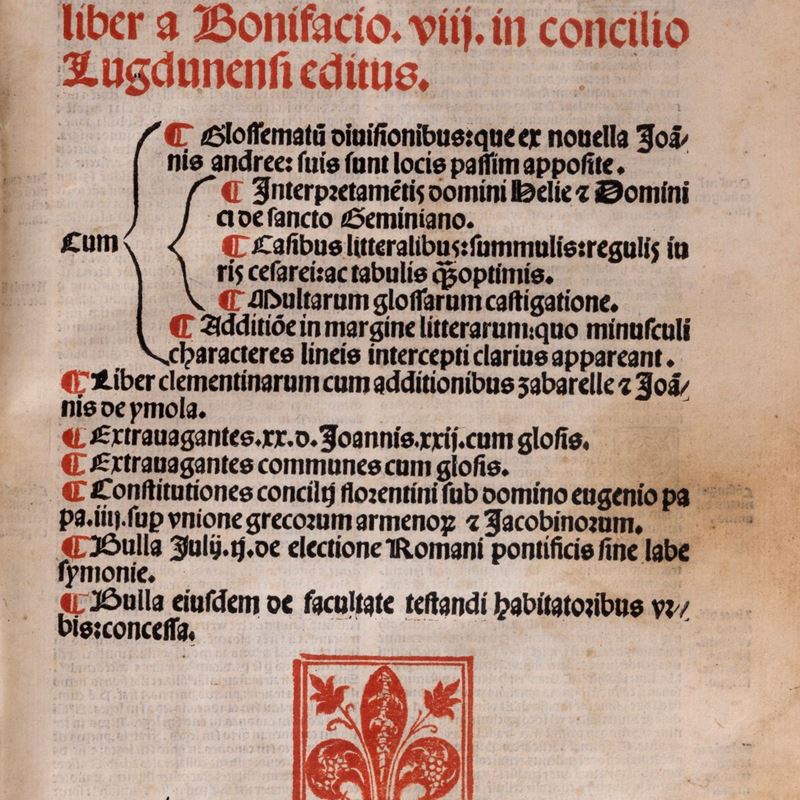 liber a Bonifacio. viij. in concilio
Lugdunensi editus.
¶ Glossematū diuisionibus: que ex nouella Joā/
nis andree: suis sunt locis passim apposite.
¶ Interpretamētis domini Helie ⁊ Domini
ci de sancto Geminiano.
Cum
¶ Casibus litteralibus: summulis: regulis iu
ris cesarei: ac tabulis q̄ꝫoptimis.
¶ Multarum glossarum castigatione.
¶ Additiōe in margine litterarum: quo minusculi
characteres lineis intercepti clarius appareant.
¶ Liber clementinarum cum additionibus zabarelle ⁊ Joā/
nis de ymola.
¶ Extrauagantes .xx. d. Joannis .xxij. cum glosis.
¶ Extrauagantes communes cum glosis.
¶ Constitutiones concilij florentini sub domino eugenio pa
pa .iiij. sup vnione grecorum armenoꝝ ⁊ Jacobinorum.
¶ Bulla Julij .ij. de electione Romani pontificis sine labe
symonie.
¶ Bulla eiusdem de facultate testandi habitatoribus vr/
bis: concessa.